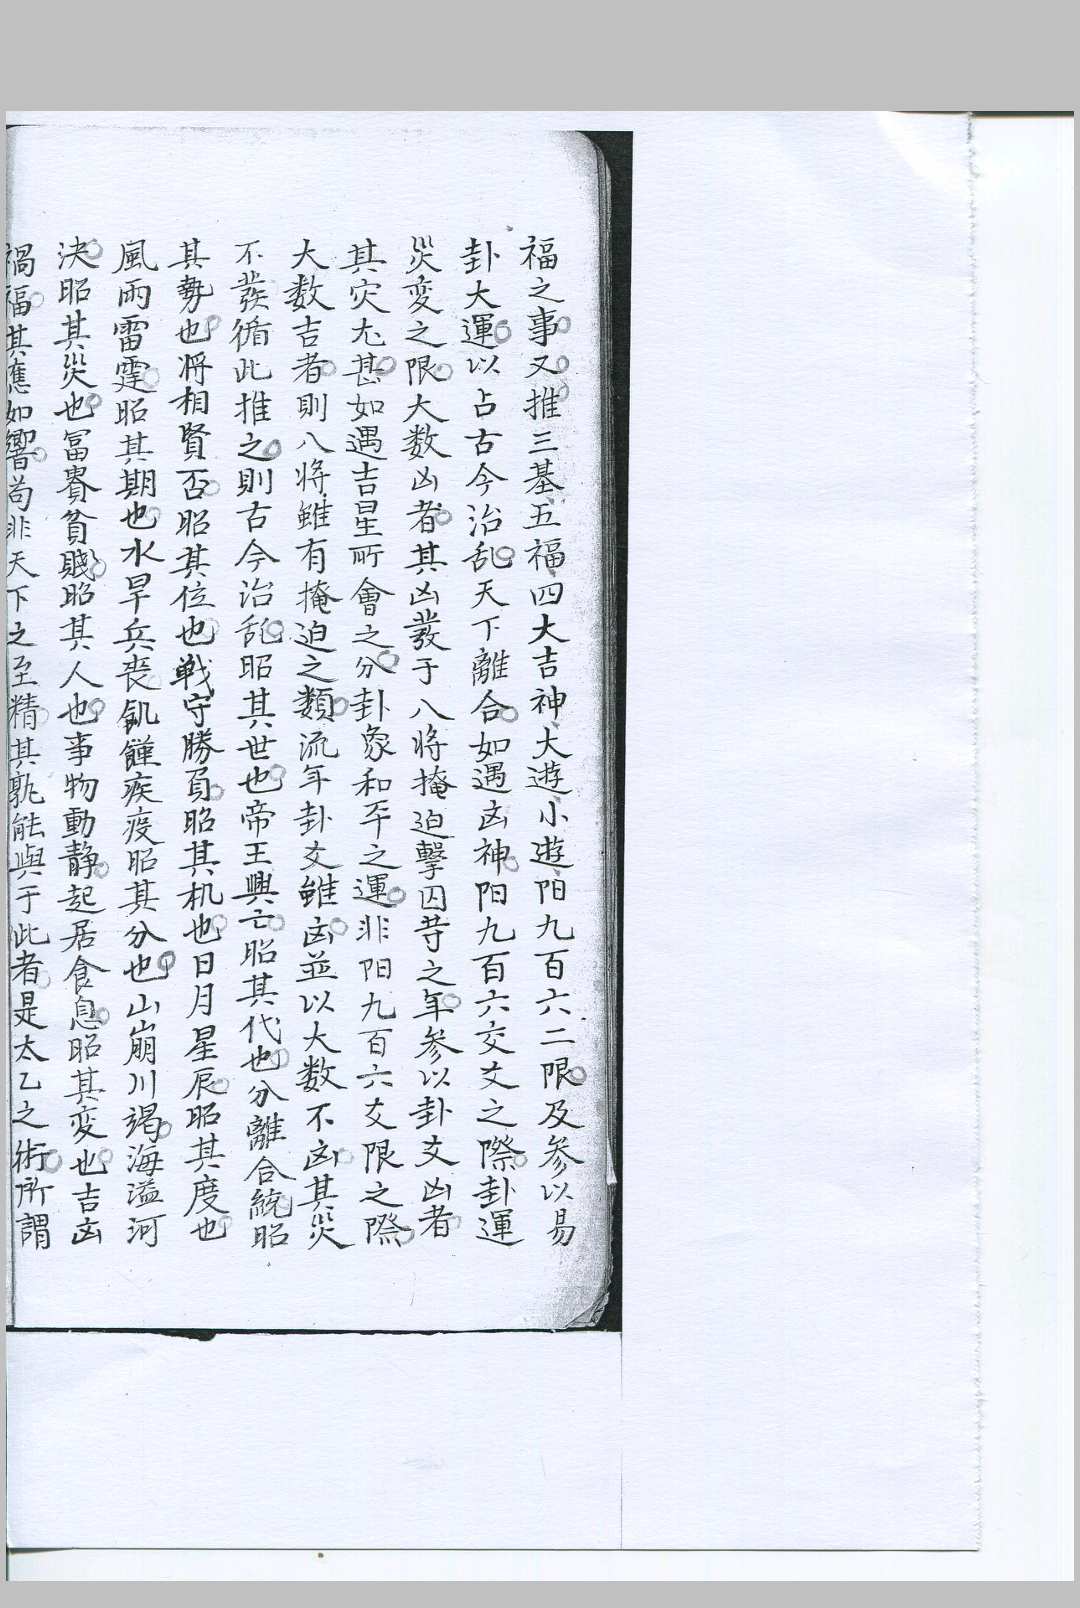 福之事又推三基五福四大吉神大遊小遊阳九百六二限及参以易
卦大運以占古今治乱天下離合如遇凶神阳九百六交爻之際卦運
災变之限大数凶者其凶發于八将掩迫擊囚等之年参以卦爻凶者
其灾尤甚如遇吉星所會之分卦象和平之運非阳九百六爻限之際
大数吉者則八将雖有掩迫之類流年卦爻雖凶並以大数不凶其災
不發循此推之則古今治乱昭其世也帝王興亡昭其代也分離合統昭
其勢也将相賢否昭其位也戦守勝負昭其机也日月星辰昭其度也
風雨雷霆昭其期也水旱兵丧飢饉疾疫昭其分也山崩川竭海溢河
決昭其災也冨貴貧賤昭其人也事物動静起居食息昭其変也吉凶
禍福其應如響苟非天下之至精其孰能與于此者是太乙之術所謂